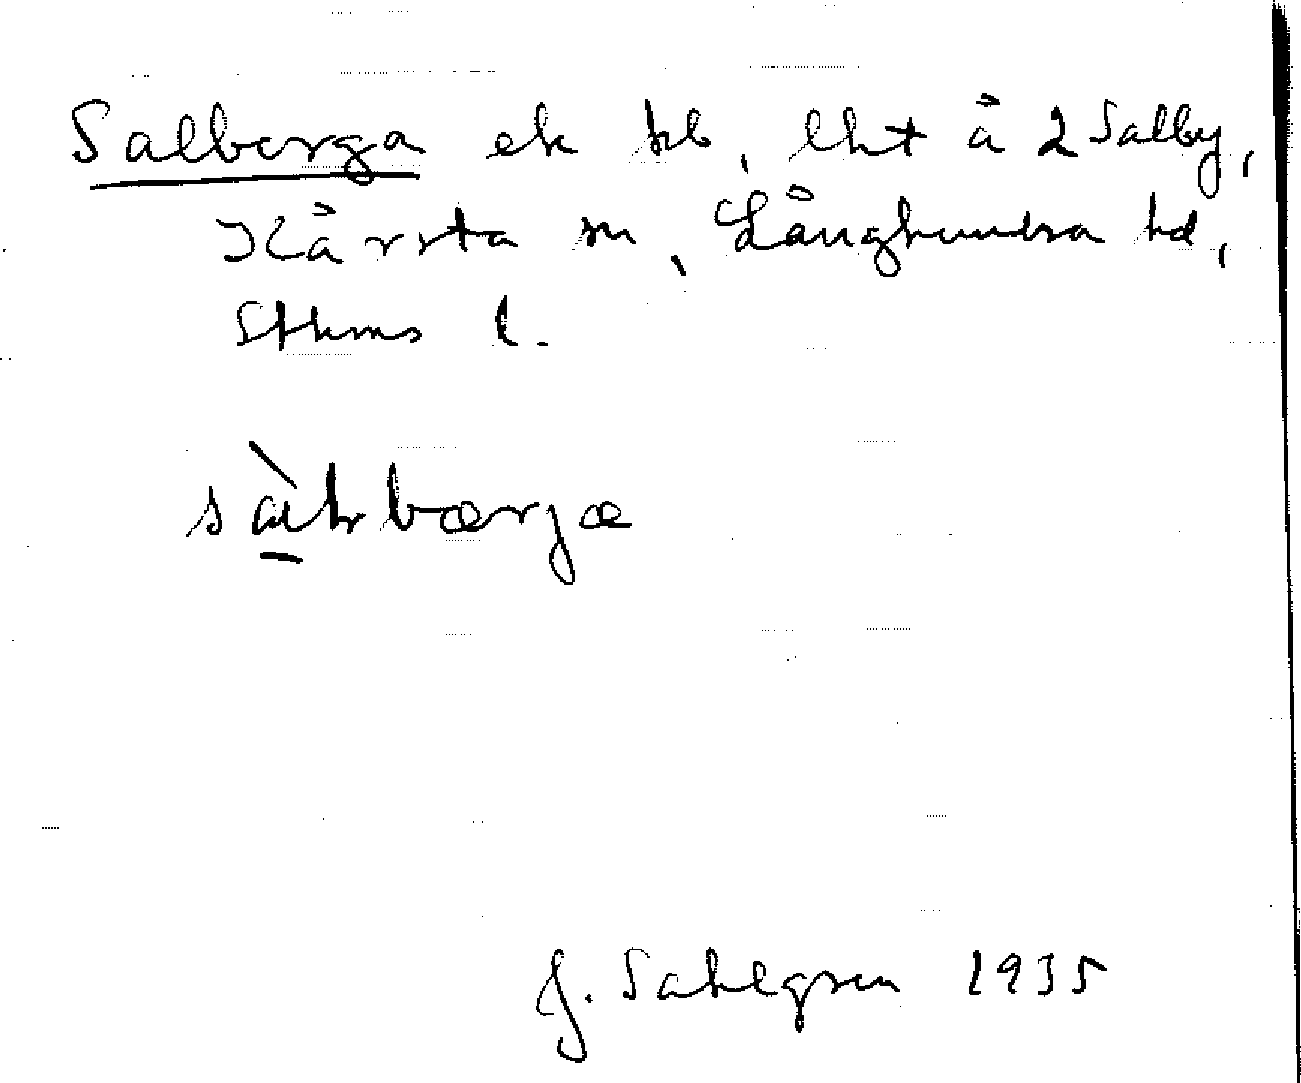 Salberga ek bl, lht å 2 Salby,
Kårsta sn, Långhundra hd,
Sthms l.
J. Sahlgren 1935